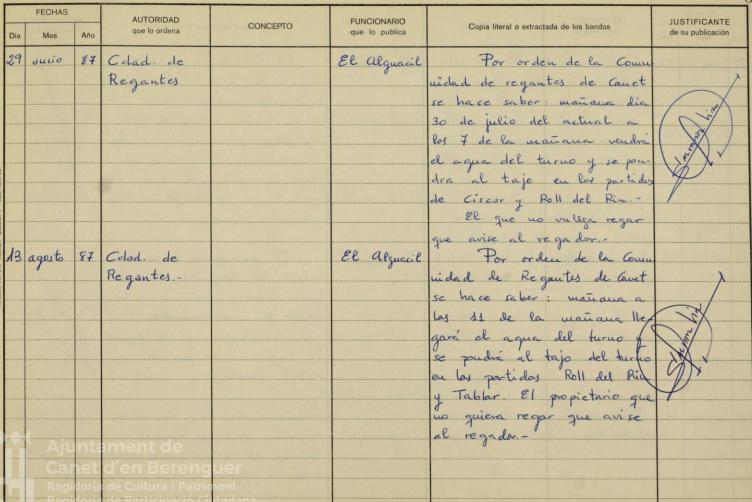 FECHAS
AUTORIDAD
que lo ordena
CONCEPTO
FUNCIONARIO
que lo publica
Copia literal o extractada de los bandos
JUSTIFICANTE
de su publicación
Día Mes Año
29 Julio 87 Cdad. de El Alguacil Por orden de la Comu
Regantes nidad de regantes de Canet
se hace saber: mañana dia
30 de julio del actual a
los 7 de la mañana vendrá
el agua del turno y se pon-
dra al tajo en los partidos
de Ciscar y Roll del Riu.-
El que no vullga regar
que avise al regador.-
13 agosto 87 Cdad. de El Alguacil Por orden de la Comu
Regantes.- nidad de Regantes de Canet
se hace saber: mañana a
las 11 de la mañana lle-
gará el agua del turno y
se pondrá al tajo del turno
en los partidos Roll del Riu
y Tablar. El propietario que
no quiera regar que avise
al regador.-
Ajuntament de
Canet d'en Berenguer
Regidoria de Cultura i Patrimoni
Regidoria de Participació Ciutadana